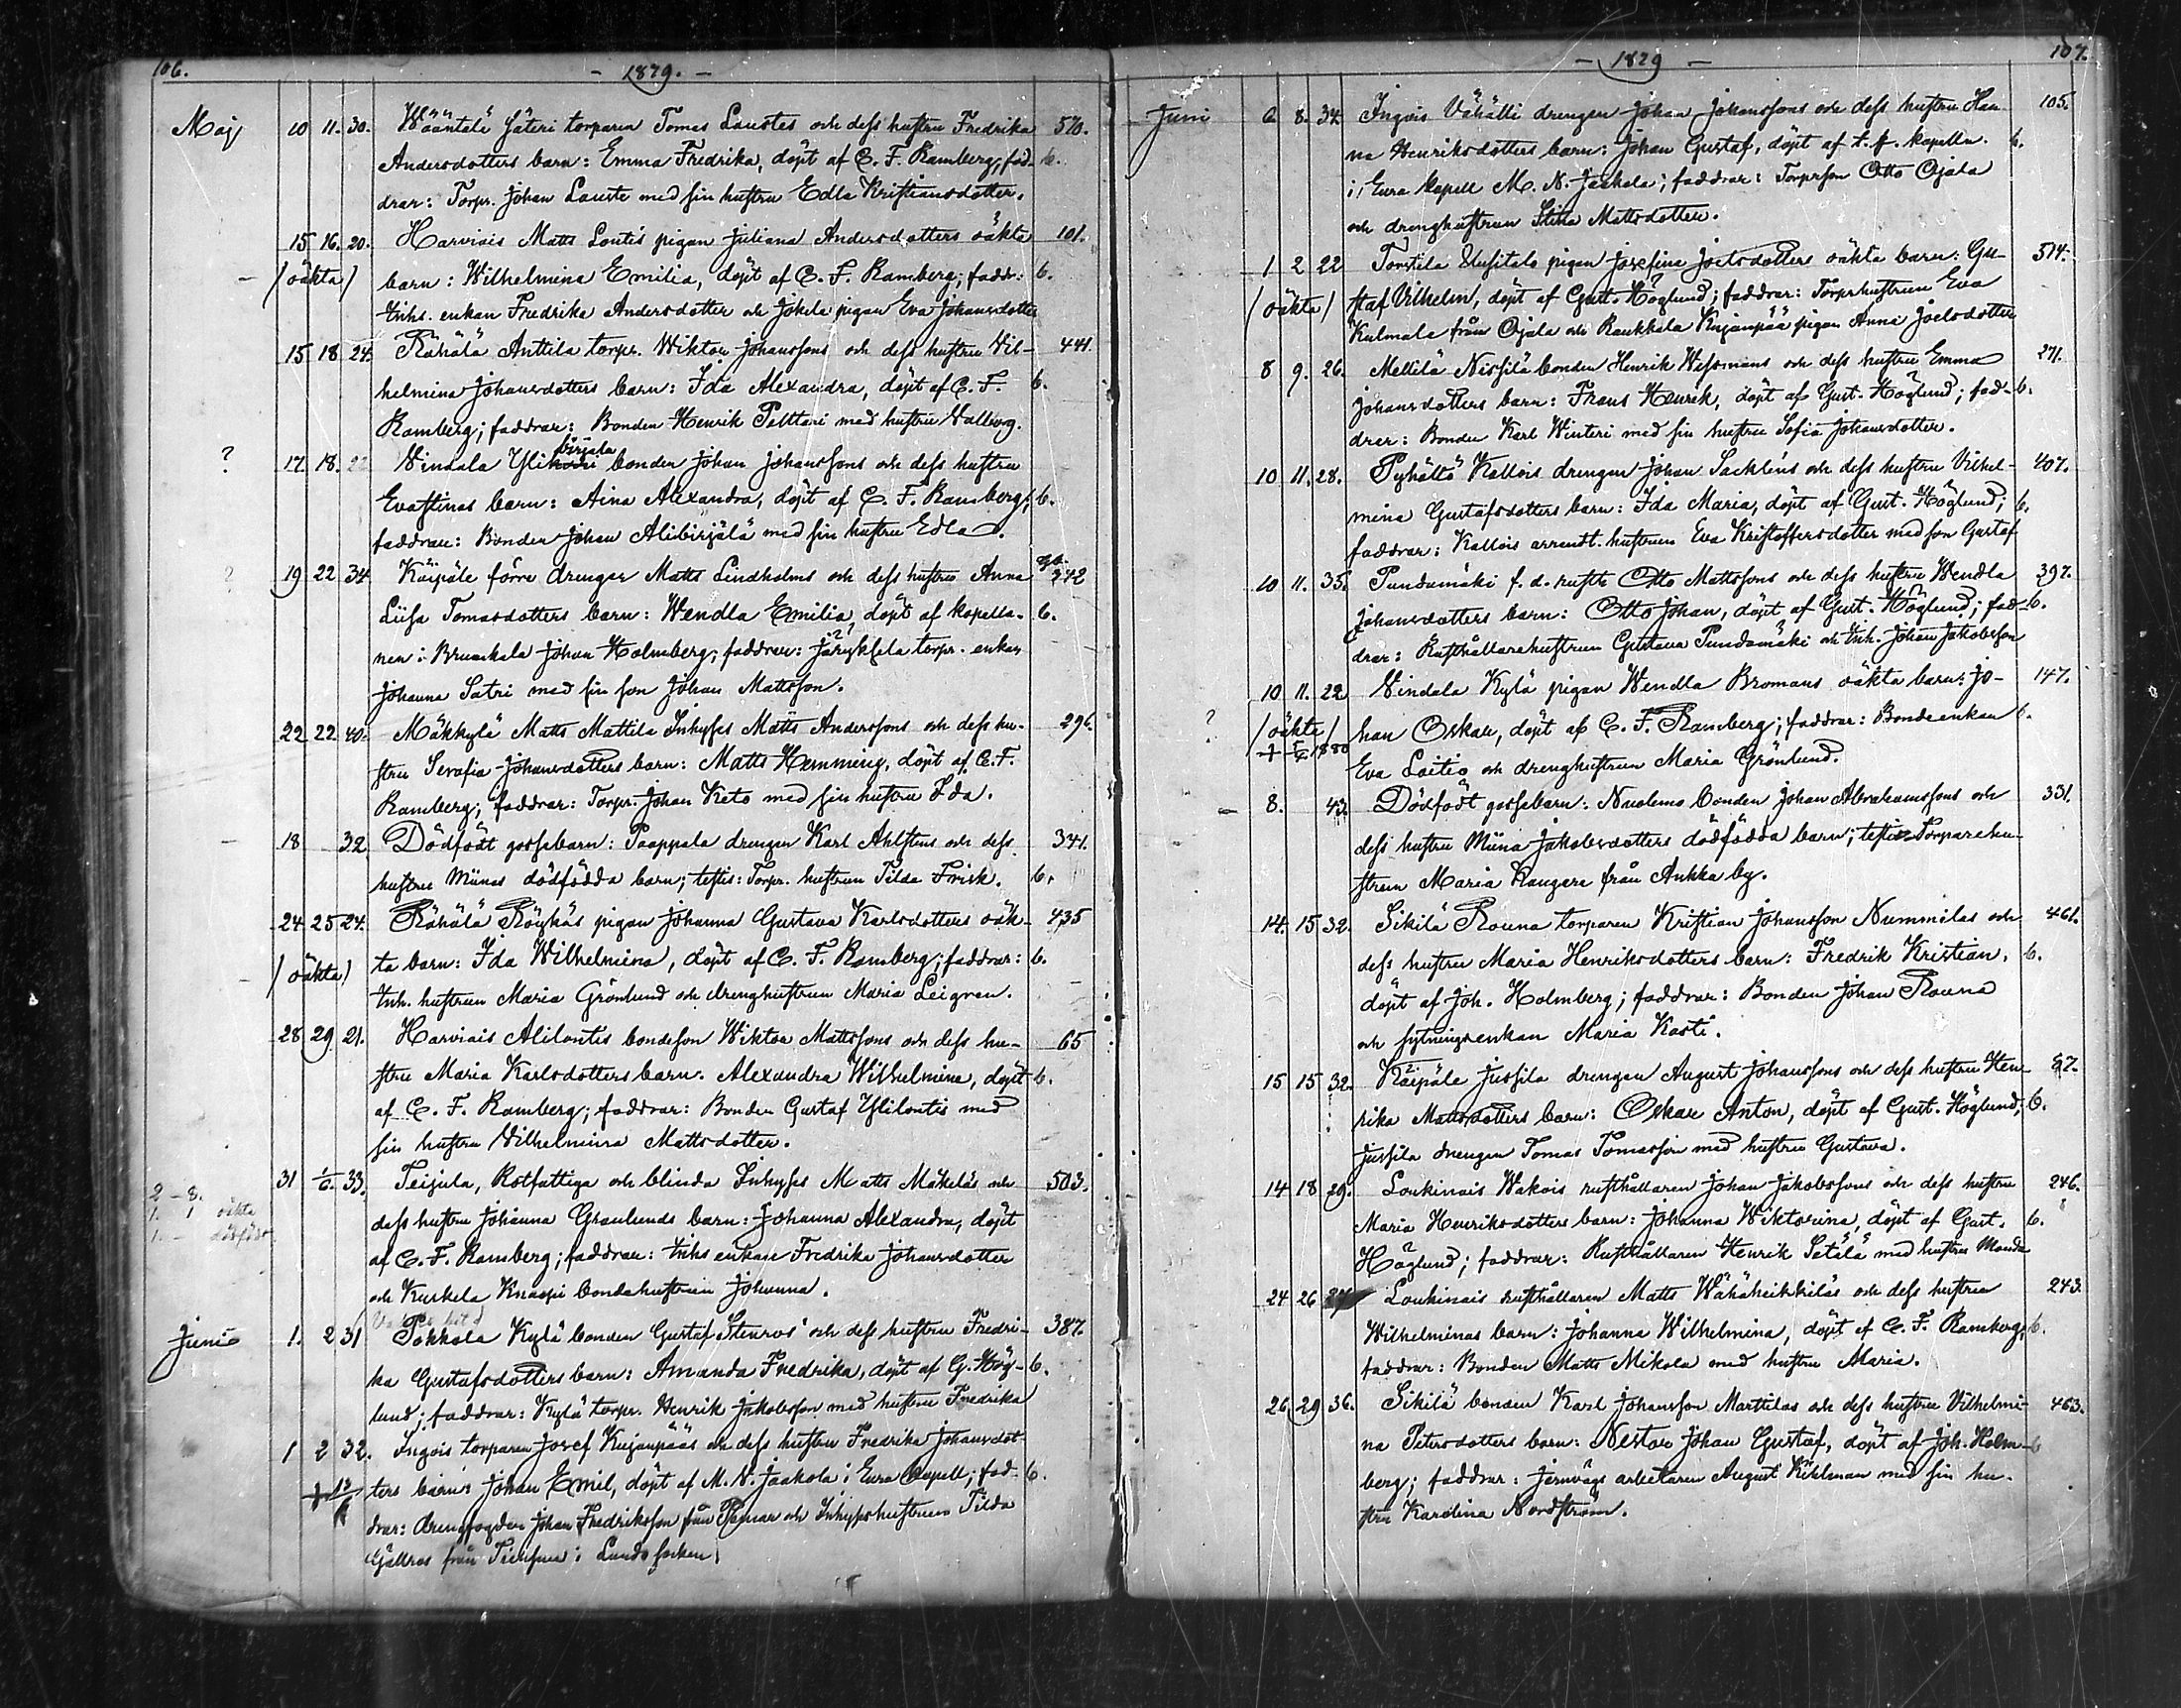 106.
- 1879. -
Maj 10 11. 30. Wääntelä Säteri torparen Tomas Laustes och dess hustru Fredrika 570.
Andersdotters barn: Emma Fredrika, döpt af C. F. Ramberg; fad- b.
drar: Torpr. Johan Lauste med sin hustru Edla Kristiansdotter.
15 16. 20. Harviais Matts Lontis pigan Juliana Andersdotters oäkta 101.
/oäkta/ barn: Wilhelmina Emilia, döpt af C. F. Ramberg; faddr: b.
Inhs. enkan Fredrika Andersdotter och Jokela pigan Eva Johansdotter
15 18 24. Rähälä Anttila torpr. Wiktor Johanssons och dess hustru Vil- 441.
helmina Johansdotters barn: Ida Alexandra, döpt af C. F. b.
Ramberg; faddrar: Bonden Henrik Pelttari med hustru Valborg.
birjala
? 17. 18. 22 Vindala Yli bonden Johan Johanssons och dess hustru
Evastinas barn: Aina Alexandra, döpt af C. F. Ramberg; b.
faddrar: Bonden Johan Alibirjälä med sin hustru Edla.
? 19 22 34 Käipäle förre drengen Matts Lindholms och dess hustru Anna 342
Liisa Tomasdotters barn: Wendla Emilia, döpt af kapella- b.
nen i Brunkala Johan Holmberg; faddrar: torpr. enkan
Johanna Satri med sin son Johan Mattsson.
22 22 40. Mäkkylä Matts Mattila Inhyses Matts Anderssons och dess hu- 296.
stru Serafia Johansdotters barn: Matts Hemming, döpt af C. F.
Ramberg; faddrar: Torpr. Johan Keto med sin hustru Ida.
- 18 32. Dödfödt gossebarn: Paappala drengen Karl Ahlstens och dess 341.
hustru Miinas dödfödda barn; testis: Torpr. hustrun Tilda Frisk. b.
24 25 24. Rähälä Röykäs pigan Johanna Gustava Karlsdotters oäk- 435
- /oäkta/ ta barn: Ida Wilhelmina, döpt af C. F. Ramberg; faddrar: b.
Inh. hustrun Maria Grönlund och drenghustrun Maria Leigren.
28 29 21. Harviais Alilontis bondeson Wiktor Mattssons och dess hu- 65
stru Maria Karlsdotters barn: Alexandra Wilhelmina, döpt b.
af C. F. Ramberg; faddrar: Bonden Gustaf Ylilontis med
sin hustru Vilhelmina Mattsdotter.
31 1/6. 33. Teijula, Rotfattiga och blinda Inhyses Matts Mäkeläs och 503.
2 - 8.
1. 1 oäkta
1. - dödfödt
dess hustru Johanna Granlunds barn: Johanna Alexandra, döpt
af C. F. Ramberg; faddrar: Inhs enkan Fredrika Johansdotter
och Kurkela Knaapi bondehustrun Johanna.
Junio 1. 2 31 Pokkola Kylä bonden Gustaf Stenros' och dess hustru Fredri- 387.
ka Gustafsdotters barn: Amanda Fredrika, döpt af G. Hög- b.
lund; faddrar: Kylä torpr. Henrik Jakobsson med hustru Fredrika
1 2 32. Ingois torparen Josef Kujanpääs och dess hustru Fredrika Johansdot-
ters barn: Johan Emil, döpt af M. N. Jaakola i Eura kapell; fad- b.
drar: drengfogden Johan Fredriksson från Pemar och Inhyseshustrun Tilda
Gällros från i Lundo socken.
107.
- 1879 -
Juni 6 8. 34 Ingois Vähälli drengen Johan Johanssons och dess hustru Han- 105.
na Henriksdotters barn: Johan Gustaf, döpt af t. f. kapelln. b.
i Eura kapell M. N. Jaakola; faddrar: Torprson Otto Ojala
och drenghustrun Stina Mattsdotter.
1 2 22 Tortila Uusitalo pigan Josefina Joelsdotters oäkta barn: Gu- 514.
/oäkta/ staf Vilhelm, döpt af Gust. Höglund; faddrar: Torprhustrun Eva
Kulmala från Ojala och Raukkala Kujanpää pigan Anna Joelsdotter
8 9. 26. Mellilä Nissilä bonden Henrik Wessmans och dess hustru Emma 271.
Johansdotters barn: Frans Henrik, döpt af Gust. Höglund; fad- b.
drar: Bonden Karl Winteri med sin hustru Sofia Johansdotter.
10 11. 28. Pyhältö Kallois drengen Johan Sackléns och dess hustru Vilhel- 407.
mina Gustafsdotters barn: Ida Maria, döpt af Gust. Höglund; b.
faddrar: Kallois arrendt. hustrun Eva Kristoffersdotter med son Gustaf
10 11. 35. Pundamäki f. d. rusth. Otto Mattssons och dess hustru Wendla 397.
Johansdotters barn: Otto Johan, döpt af Gust. Höglund; fad- b.
drar: Rusthållarehustrun Gustava Pundamäki och Inh. Johan Jakobsson
10 11. 22 Vindala Kylä pigan Wendla Bromans oäkta barn: Jo- 147.
? /oäkta/ han Oskar, döpt af C. F. Ramberg; faddrar: Bondeenkan b.
1880
Eva Laitio och drenghustrun Maria Grönlund.
- 8. 43. Dödfödt gossebarn: Nuolemo bonden Johan Abrahamssons och 331.
dess hustru Miina Jakobsdotters dödfödda barn; testis Torparehu-
strun Maria Kangare från Ankka by.
14. 15 32. Sikilä Rouna torparen Kristian Johansson Nummilas och 461.
dess hustru Maria Henriksdotters barn: Fredrik Kristian, b.
döpt af Joh. Holmberg; faddrar: Bonden Johan Rouna
och sytningsenkan Maria Kasti.
15 15 32. Käipäle Jussila drengen August Johanssons och dess hustru Hen- 87.
rika Mattsdotters barn: Oskar Anton, döpt af Gust. Höglund; b.
Jussila drengen Tomas Tomasson med hustru Gustava.
14 18 29. Loukinais Wakois rusthållaren Johan Jakobssons och dess hustru 246.
Maria Henriksdotters barn: Johanna Wiktorina, döpt af Gust. b.
Höglund; faddrar: Rusthållaren Henrik Setälä med hustru Manda
24 26 27 Loukinais rusthållaren Matts Wähäheikkiläs och dess hustru 243.
Wilhelminas barn: Johanna Wilhelmina, döpt af C. F. Ramberg; b.
faddrar: Bonden Matts Mikola med hustru Maria.
26 29 36. Sikilä bonden Karl Johansson Marttilas och dess hustru Vilhelmi- 463.
na Petersdotters barn: Nestor Johan Gustaf, döpt af Joh. Holm- b
berg; faddrar: Jernvägs arbetaren August Kihlman med sin hu-
stru Karolina Nordström.